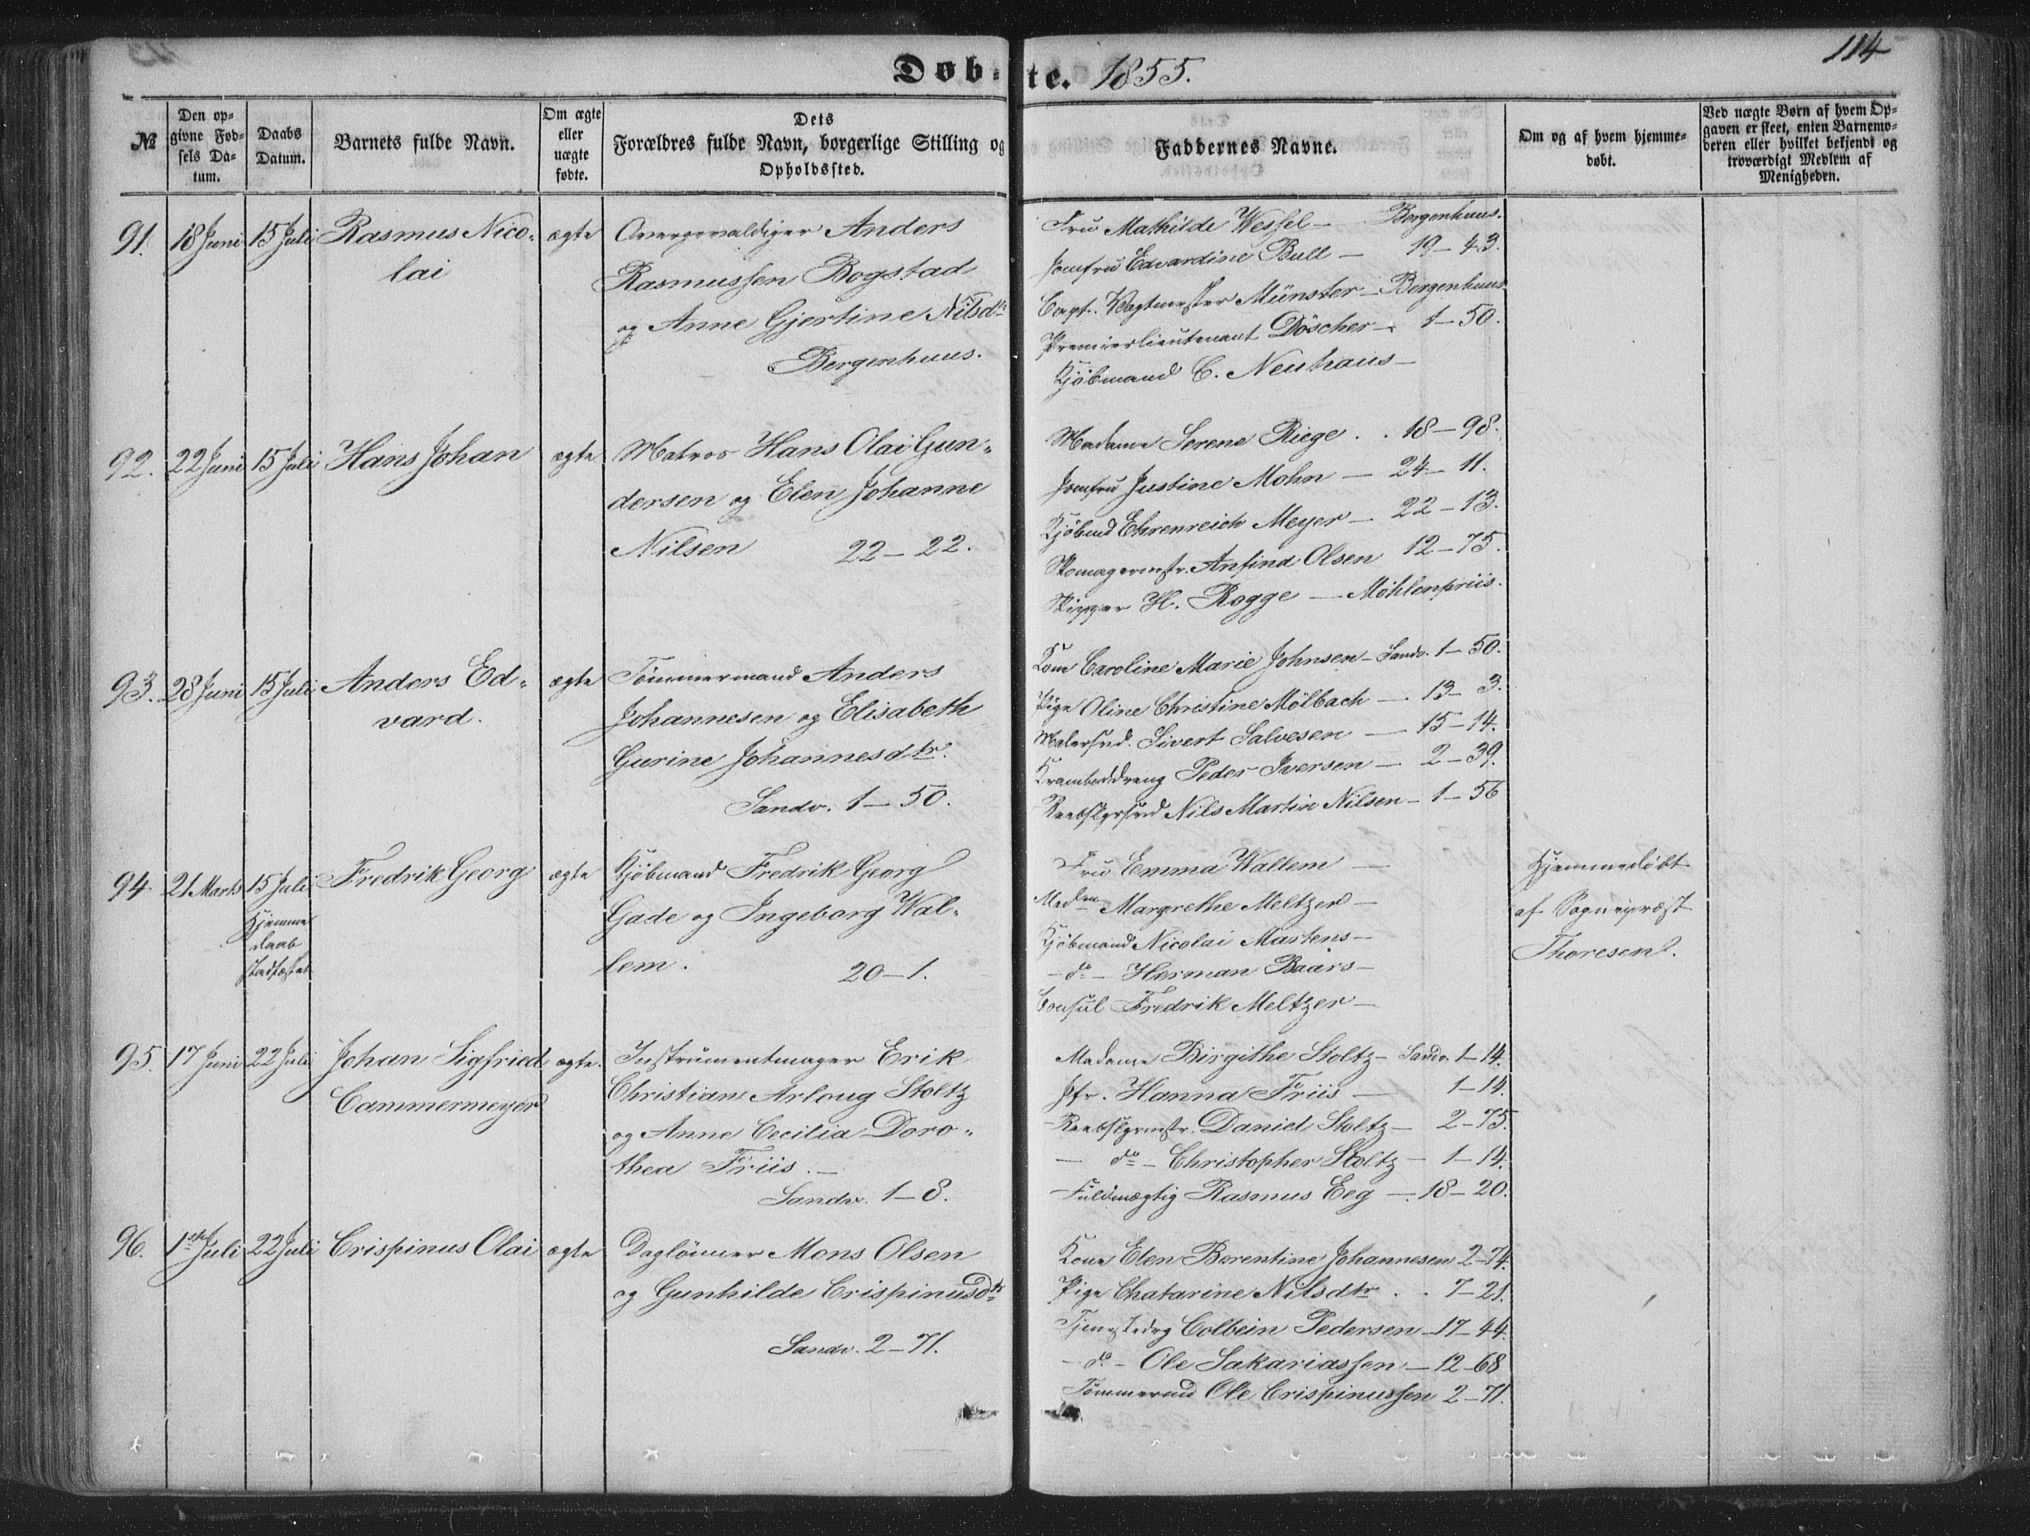 114
Døbte. 1855.
№
Den op-
givne Fød-
sels Da-
tum.
Daabs
Datum.
Barnets fulde Navn.
Om ægte
eller
uægte
fødte.
Dets
Forældres fulde Navn, borgerlige Stilling og
Opholdssted.
Faddernes Navne.
Om og af hvem hjemme-
døbt.
Ved uægte Børn af hvem Op-
gaven er skeet, enten Barnemo-
deren eller hvilket bekjendt og
troværdigt Medlem af
Menigheden.
91. 18 Juni 15 Juli Rasmus Nico-
lai
ægte
Overgevaldiger Anders
Rasmussen Bogstad
og Anne Gjertine Nilsdtr
Bergenhuus.
Fru Mathilde Wessel — Bergenhuus.
Jomfru Edvardine Bull — 19-43.
Capt. Vagtmester Münster — Bergenhuus
Premierlieutenant Döscher — 1-50.
Kjøbmand C. Neuhaus —
92. 22 Juni 15 Juli Hans Johan
ægte
Matros Hans Olai Gun-
dersen og Elen Johanne
Nilsen 22-22.
Madame Serene Riege . . 18-98.
Jomfru Justine Mohn — 24-11.
Kjøbmd Ehrenreich Meyer — 22-13.
Skomagermstr. Anfind Olsen 12-75.
Skipper H. Rogge — Möhlenpriis.
93. 28 Juni 15 Juli Anders Ed-
vard.
ægte
Tömmermand Anders
Johannesen og Elisabeth
Gurine Johannesdtr.
Sandv. 1-50.
Kone Caroline Marie Johnsen — Sandv. 1-50.
Pige Oline Christine Mölbach — 13-3.
Malersvd. Sivert Salvesen — 15-14.
Kramboddreng Peder Iversen — 2-39.
Reebslgrsvd Nils Martin Nilsen — 1-56
94. 21 Marts 15 Juli Fredrik Georg
Hjemme
daab
stadfæstet
ægte
Kjøbmand Fredrik Georg
Gade og Ingeborg Wal-
lem. 20-1.
Fru Emma Wallem —
Madm Margrethe Meltzer —
Kjøbmand Nicolai Martens —
- do - Herman Baars —
Consul Fredrik Meltzer —
Hjemmedöbt
af Sognepræst
Thoresen.
95. 17 Juni 22 Juli Johan Sigfried
Cammermeyer
ægte.
Instrumentmager Erik
Christian Arloug Stoltz
og Anne Cecilia Doro-
thea Friis. —
Sandv. 1-8.
Madame Birgithe Stoltz — Sandv. 1-14.
Jfr. Hanna Friis — 1-14.
Reebslgrmstr. Daniel Stoltz — 2-75.
— do - Christopher Stoltz — 1-14.
Fuldmægtig Rasmus Eeg — 18-20.
96. 1ste Juli 22 Juli Crispinus Olai
ægte
Daglönner Mons Olsen
og Gunhilde Crispinusdtr
Sandv. 2-71.
Kone Elen Berentine Johannesen 2-74.
Pige Chatarine Nilsdtr . . 7-21.
Tjenestedrg Colbein Pedersen — 17-44.
- do - Ole Sakariassen — 12-68
Tömmermd Ole Crispinussen 2-71.